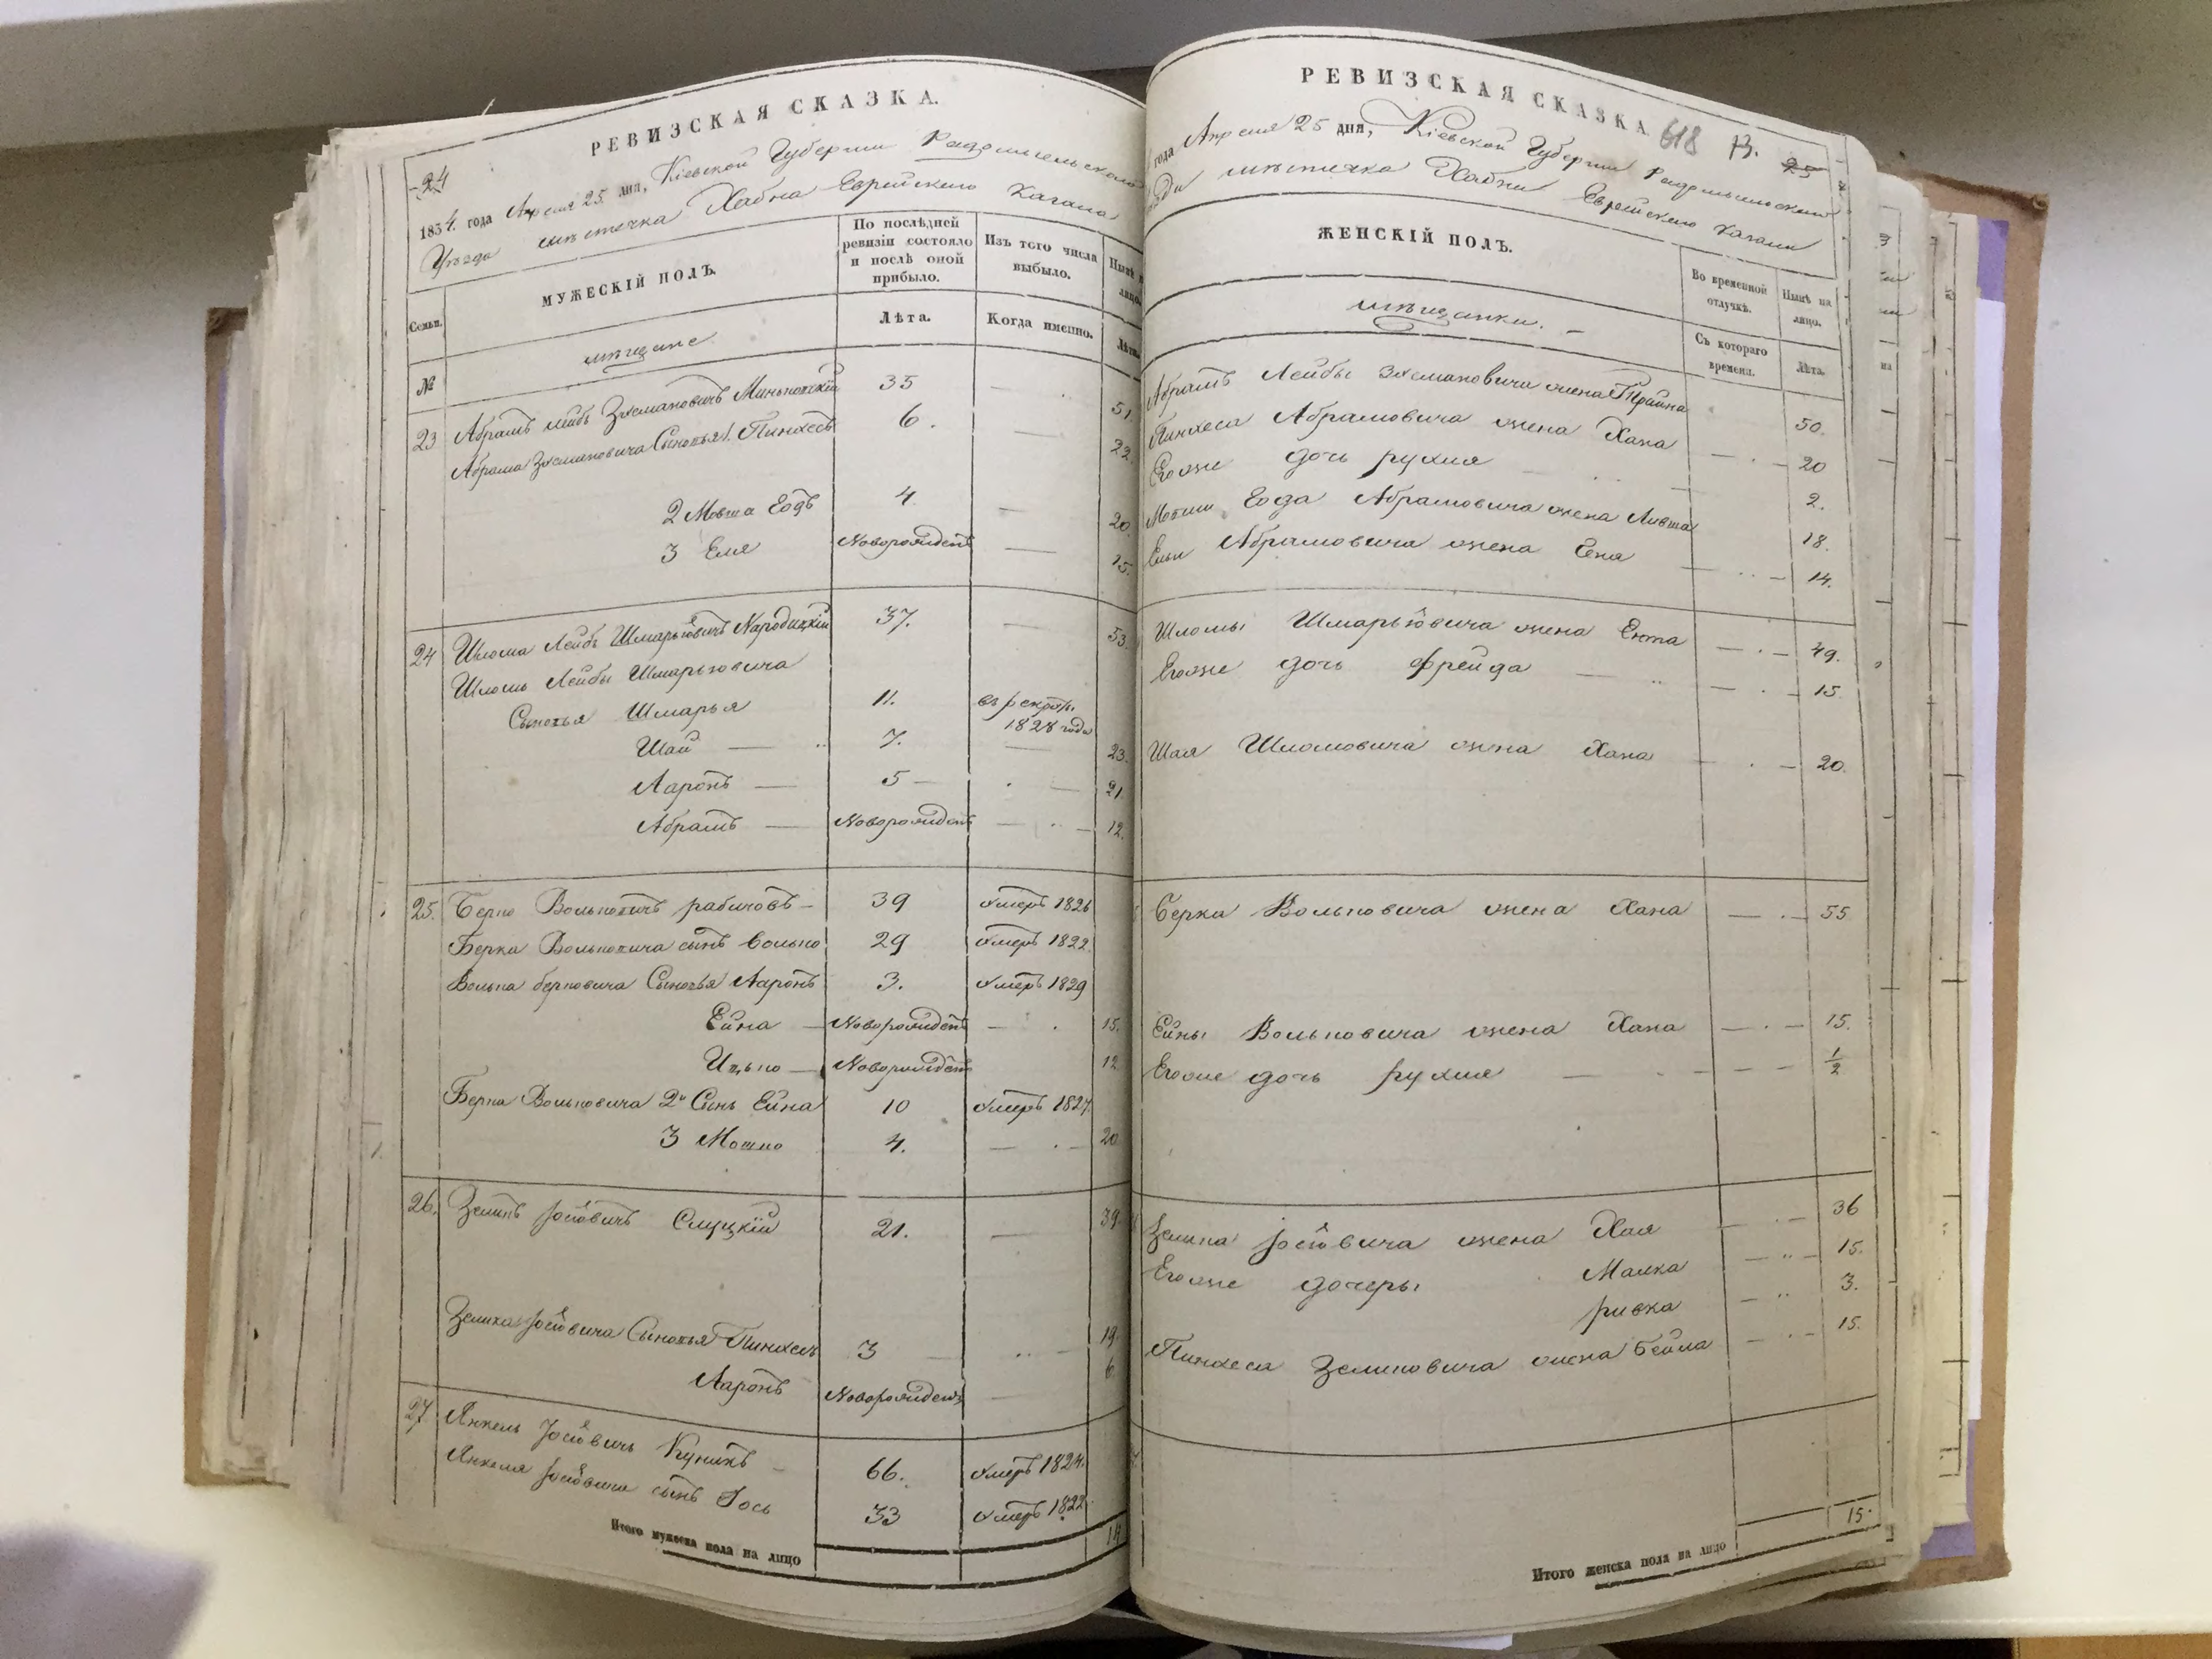 РЕВИЗСКАЯ СКАЗКА.
24
1834. года Апреля 25 дня, Кіевской Губерніи Радомысльскаго
Уѣзда мѣстечка Хабна Еврейскаго Кагала
Семьи.
МУЖЕСКІЙ ПОЛЪ.
По послѣдней ревизіи состояло и послѣ оной прибыло.
Изъ того числа выбыло.
Нынѣ на лицо.
№
мѣщане
Лѣта.
Когда именно.
Лѣта.
23 Абрамъ Лейбъ Зхсмановичъ 35 — 51.
Абрама Зхсмановича Сыновья 1. Пинхесъ 6. — 22.
2 Мовша Еодъ 4. — 20.
3 Еля Новорожденъ — 15.
24 Шлома Лейбъ Шмарьёвичъ Народицкій 37. — 53.
Шломы Лейбы Шмарьовича
Сыновья Шмарья 11. въ рекрот.
1828 года
Шай — 7. — 23.
Ааронъ — 5 — 21.
Абрамъ — Новорожденъ — 12.
25. Берко Вольковичъ рабиновъ — 39 умеръ 1826
Берка Вольковича сынъ Волько 29 умеръ 1822.
Волька берковича Сыновья Ааронъ 3. умеръ 1829
Ейна — Новорожденъ — 15.
Ицько — Новорожденъ 12
Берка Вольковича 2й Сынъ Ейна 10 умеръ 1827.
3 Мошко 4. — 20
26. Зеликъ Іосіовичъ Слуцкій 21. — 39.
Зелика Іосіовича Сыновья Пинхесъ 3 — 19.
Ааронъ Новорожденъ — 6
27 Янкель Іосіовичъ Куликъ — 66. умеръ 1824.
Янкеля Іосіовича сынъ Іось 33 умеръ 1822
Итого мужеска пола на лицо 14
РЕВИЗСКАЯ СКАЗКА.
618 13. 25
года Апреля 25 дня, Кіевской Губерніи Радомысльскаго
мѣстечка Хабни Еврейскаго Кагала
ЖЕНСКІЙ ПОЛЪ.
Во временной отлучкѣ.
Нынѣ на лицо.
мѣщанки. —
Съ котораго времени.
Лѣта.
Абрамъ Лейбы Зхсмановича жена Фрайна 50.
Пинхеса Абрамовича жена Хана — 20
Егоже дочь рухля — 2.
Мовши Еода Абрамовича жена Ливша 18.
Ельи Абрамовича жена Сена — 14.
Шломы Шмарьёвича жена Ента — 49.
Егоже дочь фрейда — 15.
Шая Шломовича жена Хана — 20.
Берка Вольковича жена Хана — 55
Ейны Вольковича жена Хана — 15.
Егоже дочь рухля — 1/2
Зелика Іосіовича жена Хая — 36
Егоже дочеры Малка — 15.
ривка — 3.
Пинхеса Зеликовича жена Бейла — 15.
Итого женска пола на лицо 15.